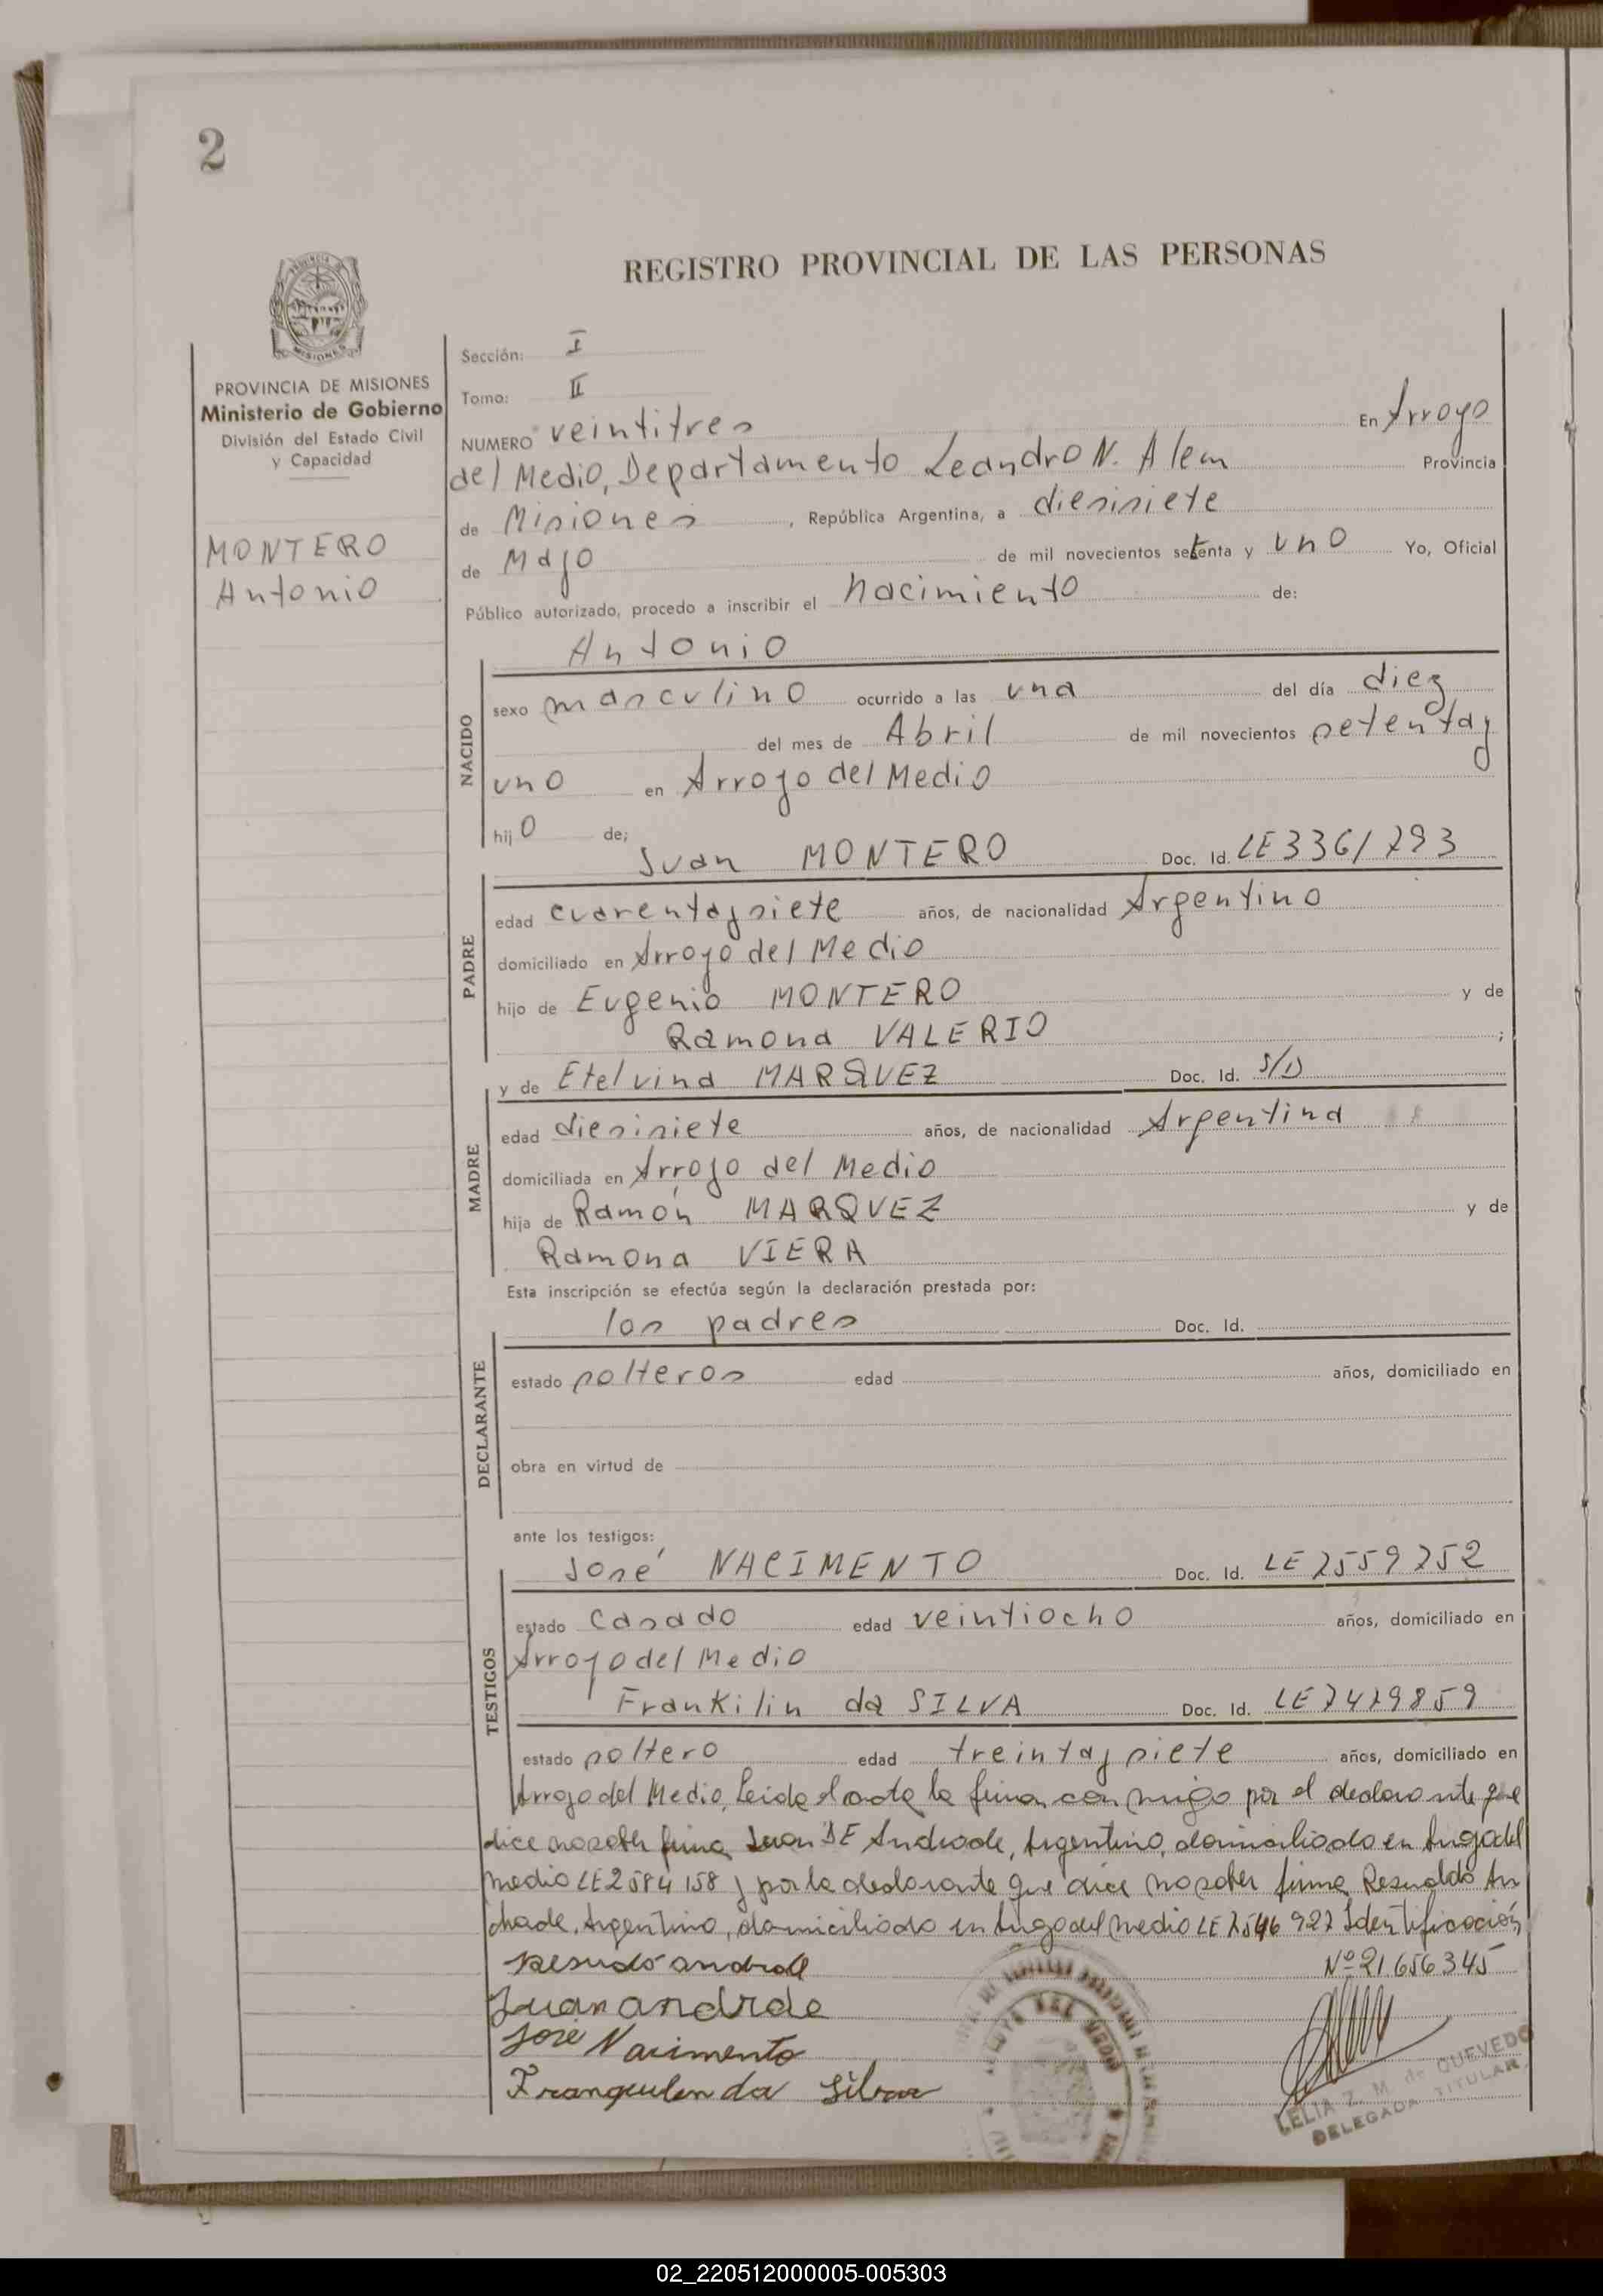 2
REGISTRO PROVINCIAL DE LAS PERSONAS
PROVINCIA DE MISIONES
Ministerio de Gobierno
División del Estado Civil
y Capacidad
MONTERO
Antonio
Sección: I
Tomo: II
NUMERO veintitres En Arroyo
del Medio, Departamento Leandro N. Alem Provincia
de Misiones, República Argentina, a diesisiete
de Mayo de mil novecientos setenta y uno Yo, Oficial
Público autorizado, procedo a inscribir el nacimiento de:
Antonio
NACIDO
sexo masculino ocurrido a las una del día diez
del mes de Abril de mil novecientos setenta y
uno en Arroyo del Medio
hijo de;
Juan MONTERO Doc. Id. LE 3361793
PADRE
edad cuarenta y siete años, de nacionalidad Argentino
domiciliado en Arroyo del Medio
hijo de Eugenio MONTERO y de
Ramona VALERIO ;
y de Etelvina MARQUEZ Doc. Id. S/D
MADRE
edad diesisiete años, de nacionalidad Argentina
domiciliada en Arroyo del Medio
hija de Ramón MARQUEZ y de
Ramona VIERA
Esta inscripción se efectúa según la declaración prestada por:
los padres Doc. Id.
DECLARANTE
estado solteros edad años, domiciliado en
obra en virtud de
ante los testigos:
José NACIMENTO Doc. Id. LE 7559752
TESTIGOS
estado casado edad veintiocho años, domiciliado en
Arroyo del Medio
Frankilin da SILVA Doc. Id. LE 7479859
estado soltero edad treinta y siete años, domiciliado en
Arroyo del Medio, Leida el acta la firma conmigo por el declarante que
dice no saber firma Juan DE Andrade, Argentino, domiciliado en Arroyo del
medio LE 2584158 y por la declarante que dice no saber firma Resualdo An
drade, Argentino, domiciliado en Arroyo del medio LE 7546927 Identificación
Nº 21.656345
Resualdo andrade
Juan andrde
José Nacimento
Franquilen da Silva
LELIA Z. M. de QUEVEDO
DELEGADA TITULAR
02_220512000005-005303